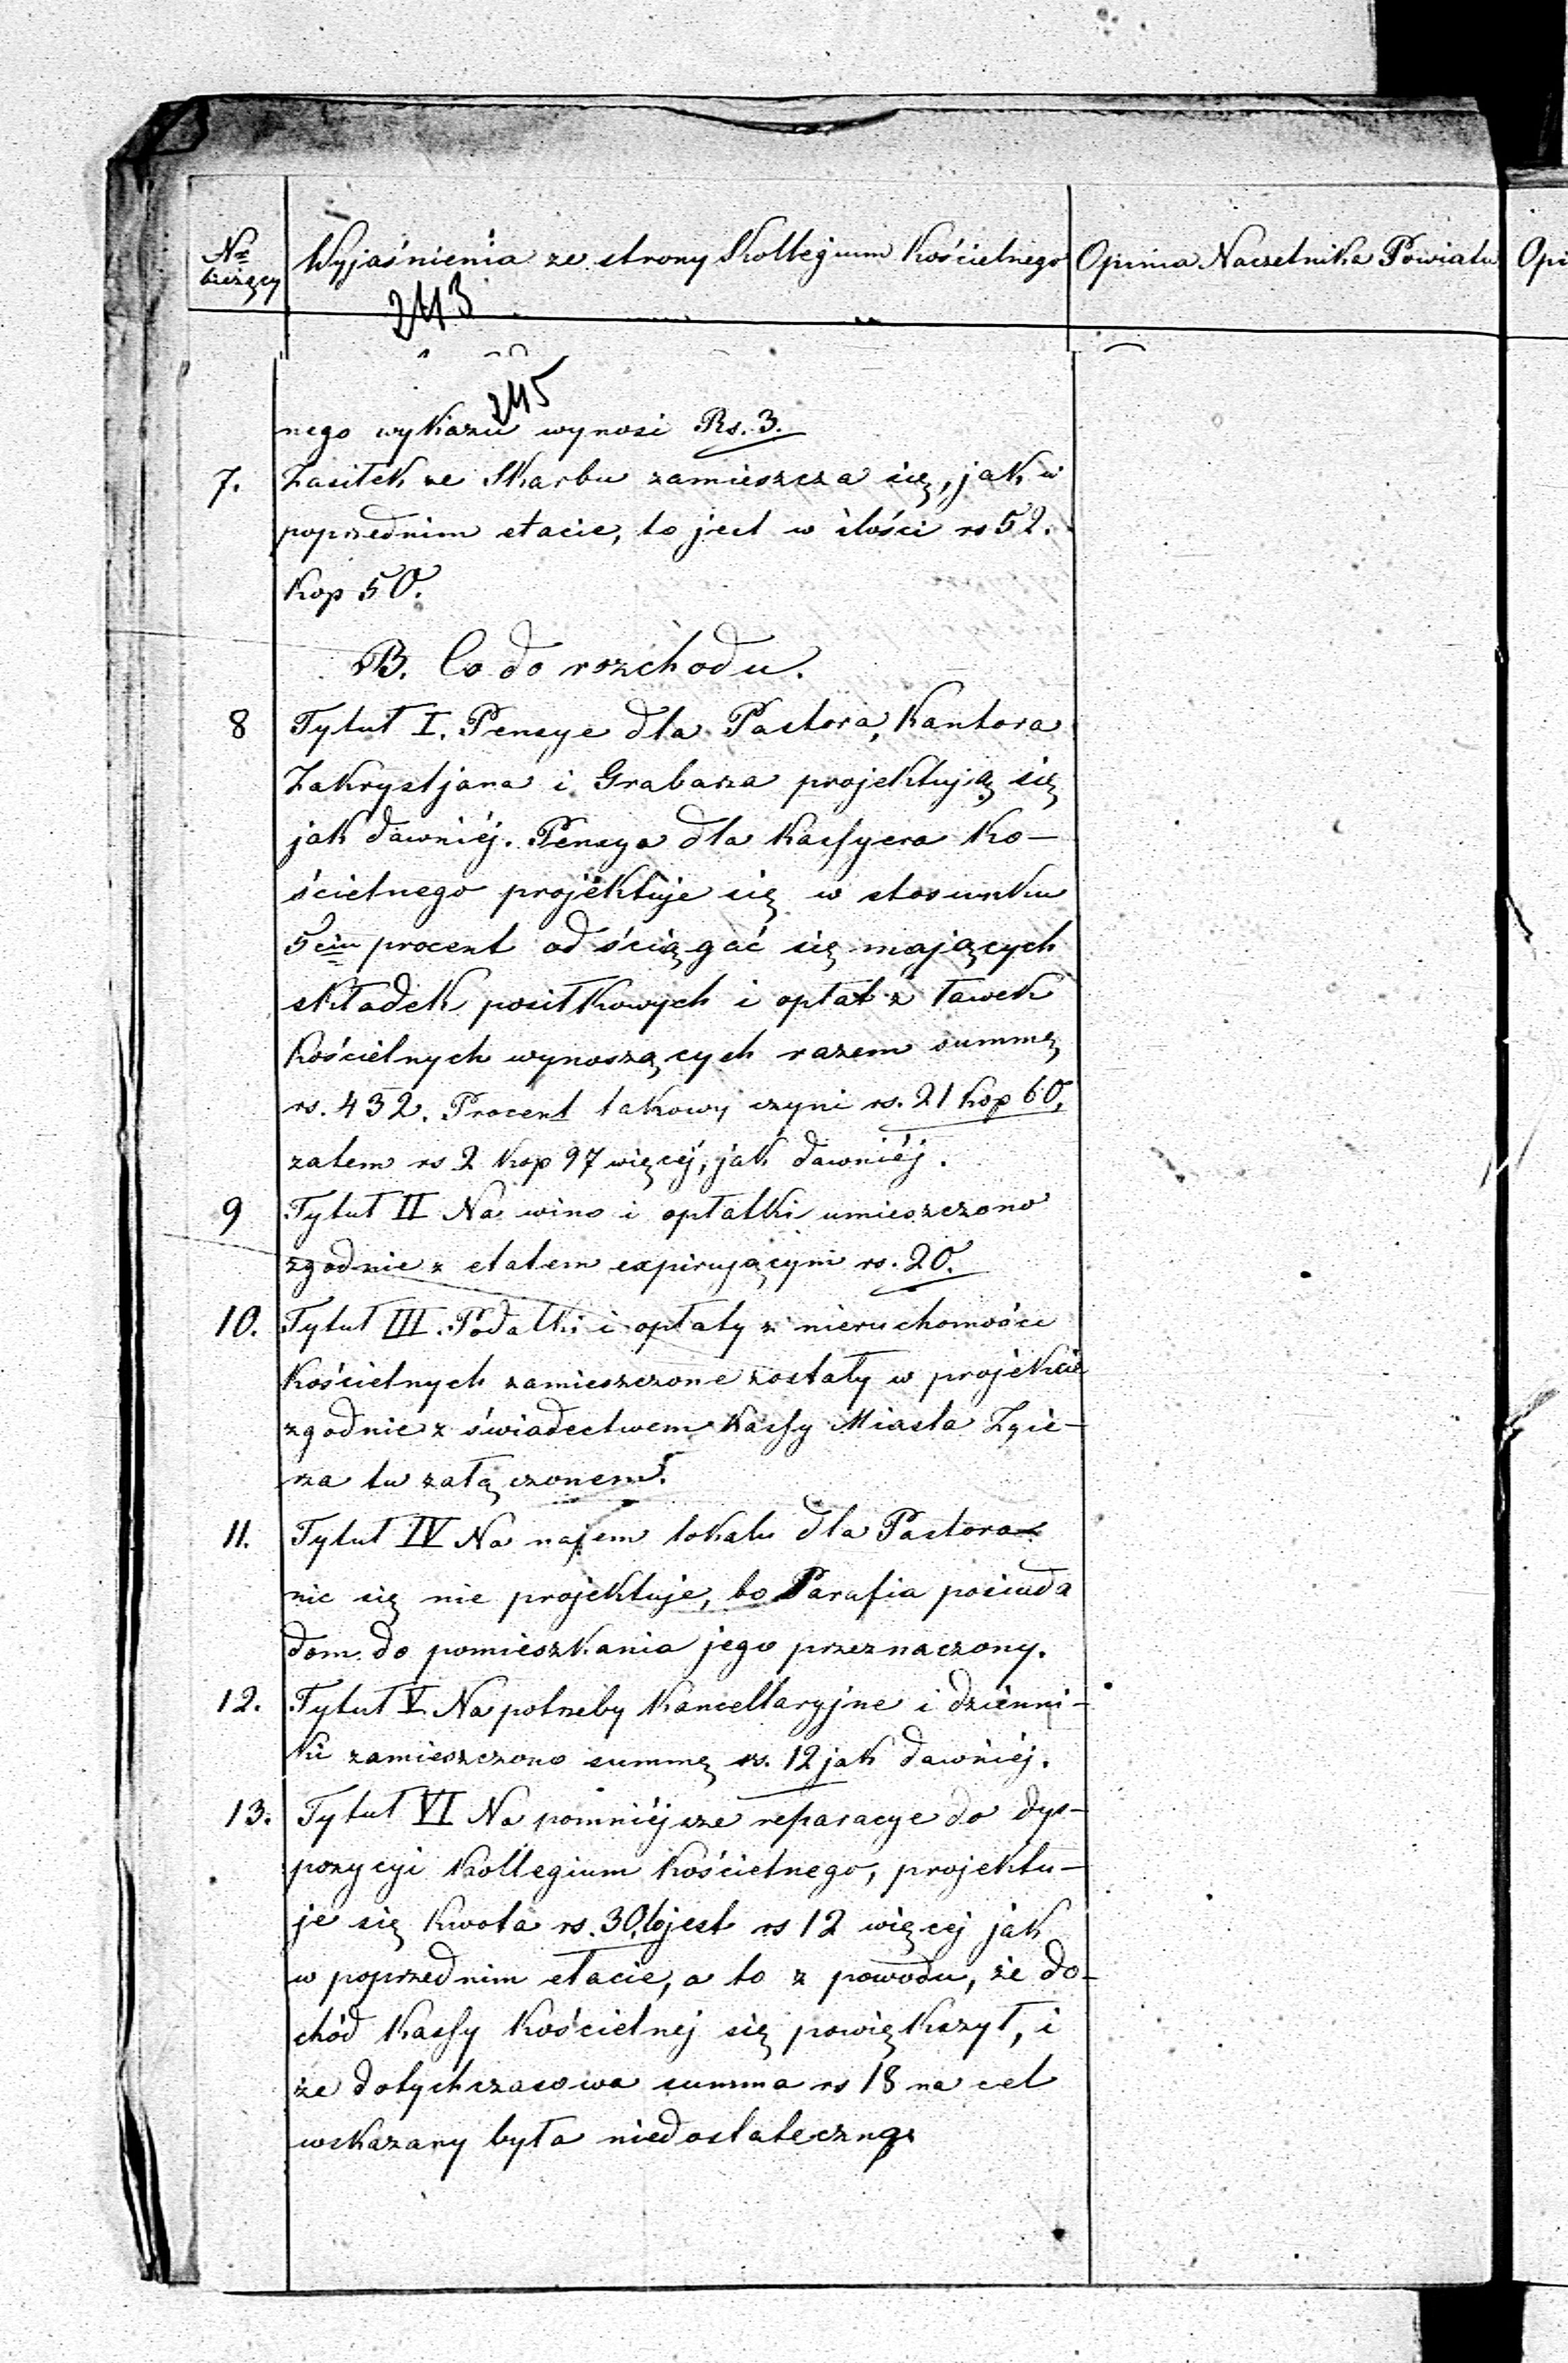 Nr bieżący
Wyjaśnienia ze strony Kollegium Kościelnego
Opinia Naczelnika Powiatu
Opi
2113
2115
nego wykazu wynosi Rs. 3.
7. Zasiłek ze Skarbu zamieszcza się, jak w
poprzednim etacie, to jest w ilości rs 52.
kop 50.
B. Co do rozchodu.
8 Tytuł I. Pensye dla Pastora, Kantora
Zakrystjana i Grabarza projektują się
jak dawniéj. Pensya dla Kassyera Ko-
ścielnego projektuje się w stosunku
5ciu procent od ściągać się mających
składek posiłkowych i opłat z ławek
Kościelnych wynoszących razem summę
rs. 432. Procent takowy czyni rs. 21 kop 60,
zatem rs 2 kop 97 więcéj, jak dawniéj.
9 Tytuł II Na wino i opłatki umieszczono
zgodnie z etatem expirującym rs. 20.
10. Tytuł III. Podatki i opłaty z nieruchomości
Kościelnych zamieszczone zostały w projekcie
zgodnie z świadectwem Kassy Miasta Zgie-
rza tu załączonem.
11. Tytuł IV Na najem lokalu dla Pastora
nic się nie projektuje, bo Parafia posiada
dom do pomieszkania jego przeznaczony.
12. Tytuł V Na potrzeby Kancellaryjne i dzienni-
ki zamieszczono summę rs. 12 jak dawniéj.
13. Tytuł VI Na pomniéjsze reparacye do dys-
pozycyi Kollegium Kościelnego, projektu-
je się kwota rs. 30, to jest rs 12 więcej jak
w poprzednim etacie, a to z powodu, że do-
chód Kassy Kościelnej się powiększył, i
że dotychczasowa summa rs 18 na cel
wskazany była niedostateczną.